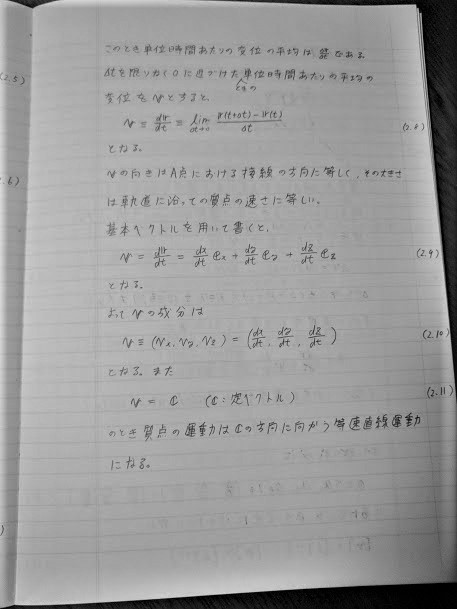 このとき単位時間あたりの変位の平均は Δr/Δt である
Δtを限りなく0に近づけたときの単位時間あたりの平均の
変位を v とすると、
v ≡ dr/dt ≡ lim Δt→0 (r(t+Δt)-r(t))/Δt (2.8)
となる。
vの向きはA点における接線の方向に等しく、その大きさ
は軌道に沿っての質点の速さに等しい。
基本ベクトルを用いて書くと、
v = dr/dt = dx/dt ex + dy/dt ey + dz/dt ez (2.9)
となる。
よって v の成分は
v ≡ (vx, vy, vz) = (dx/dt, dy/dt, dz/dt) (2.10)
となる。また
v = C (C:定ベクトル) (2.11)
のとき質点の運動はCの方向に向かう等速直線運動
になる。